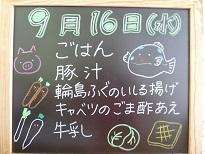 9月16日(水)
ごはん
豚汁
輪島ふぐのいしる揚げ
キャベツのごま酢あえ
牛乳